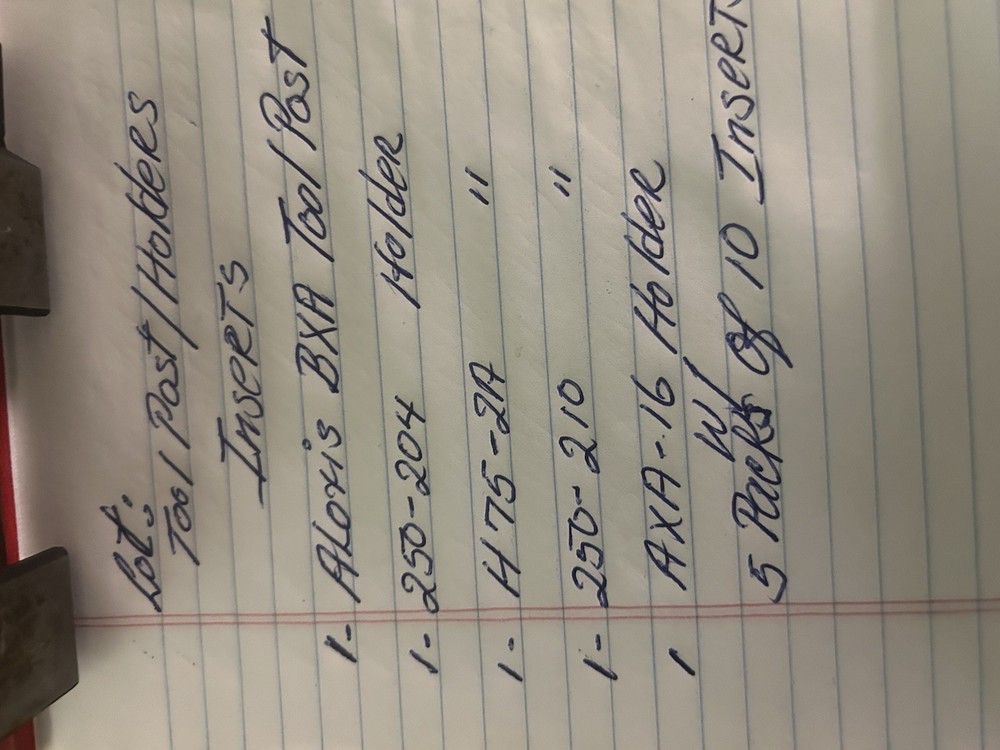 Lot:
Tool Post/Holders
Inserts
1- ALoris BXA Tool Post
1- 250-204 Holder
1- H75-2A "
1- 250-210 "
1 AXA-16 Holder
W/
5 Packs Of 10 Inserts